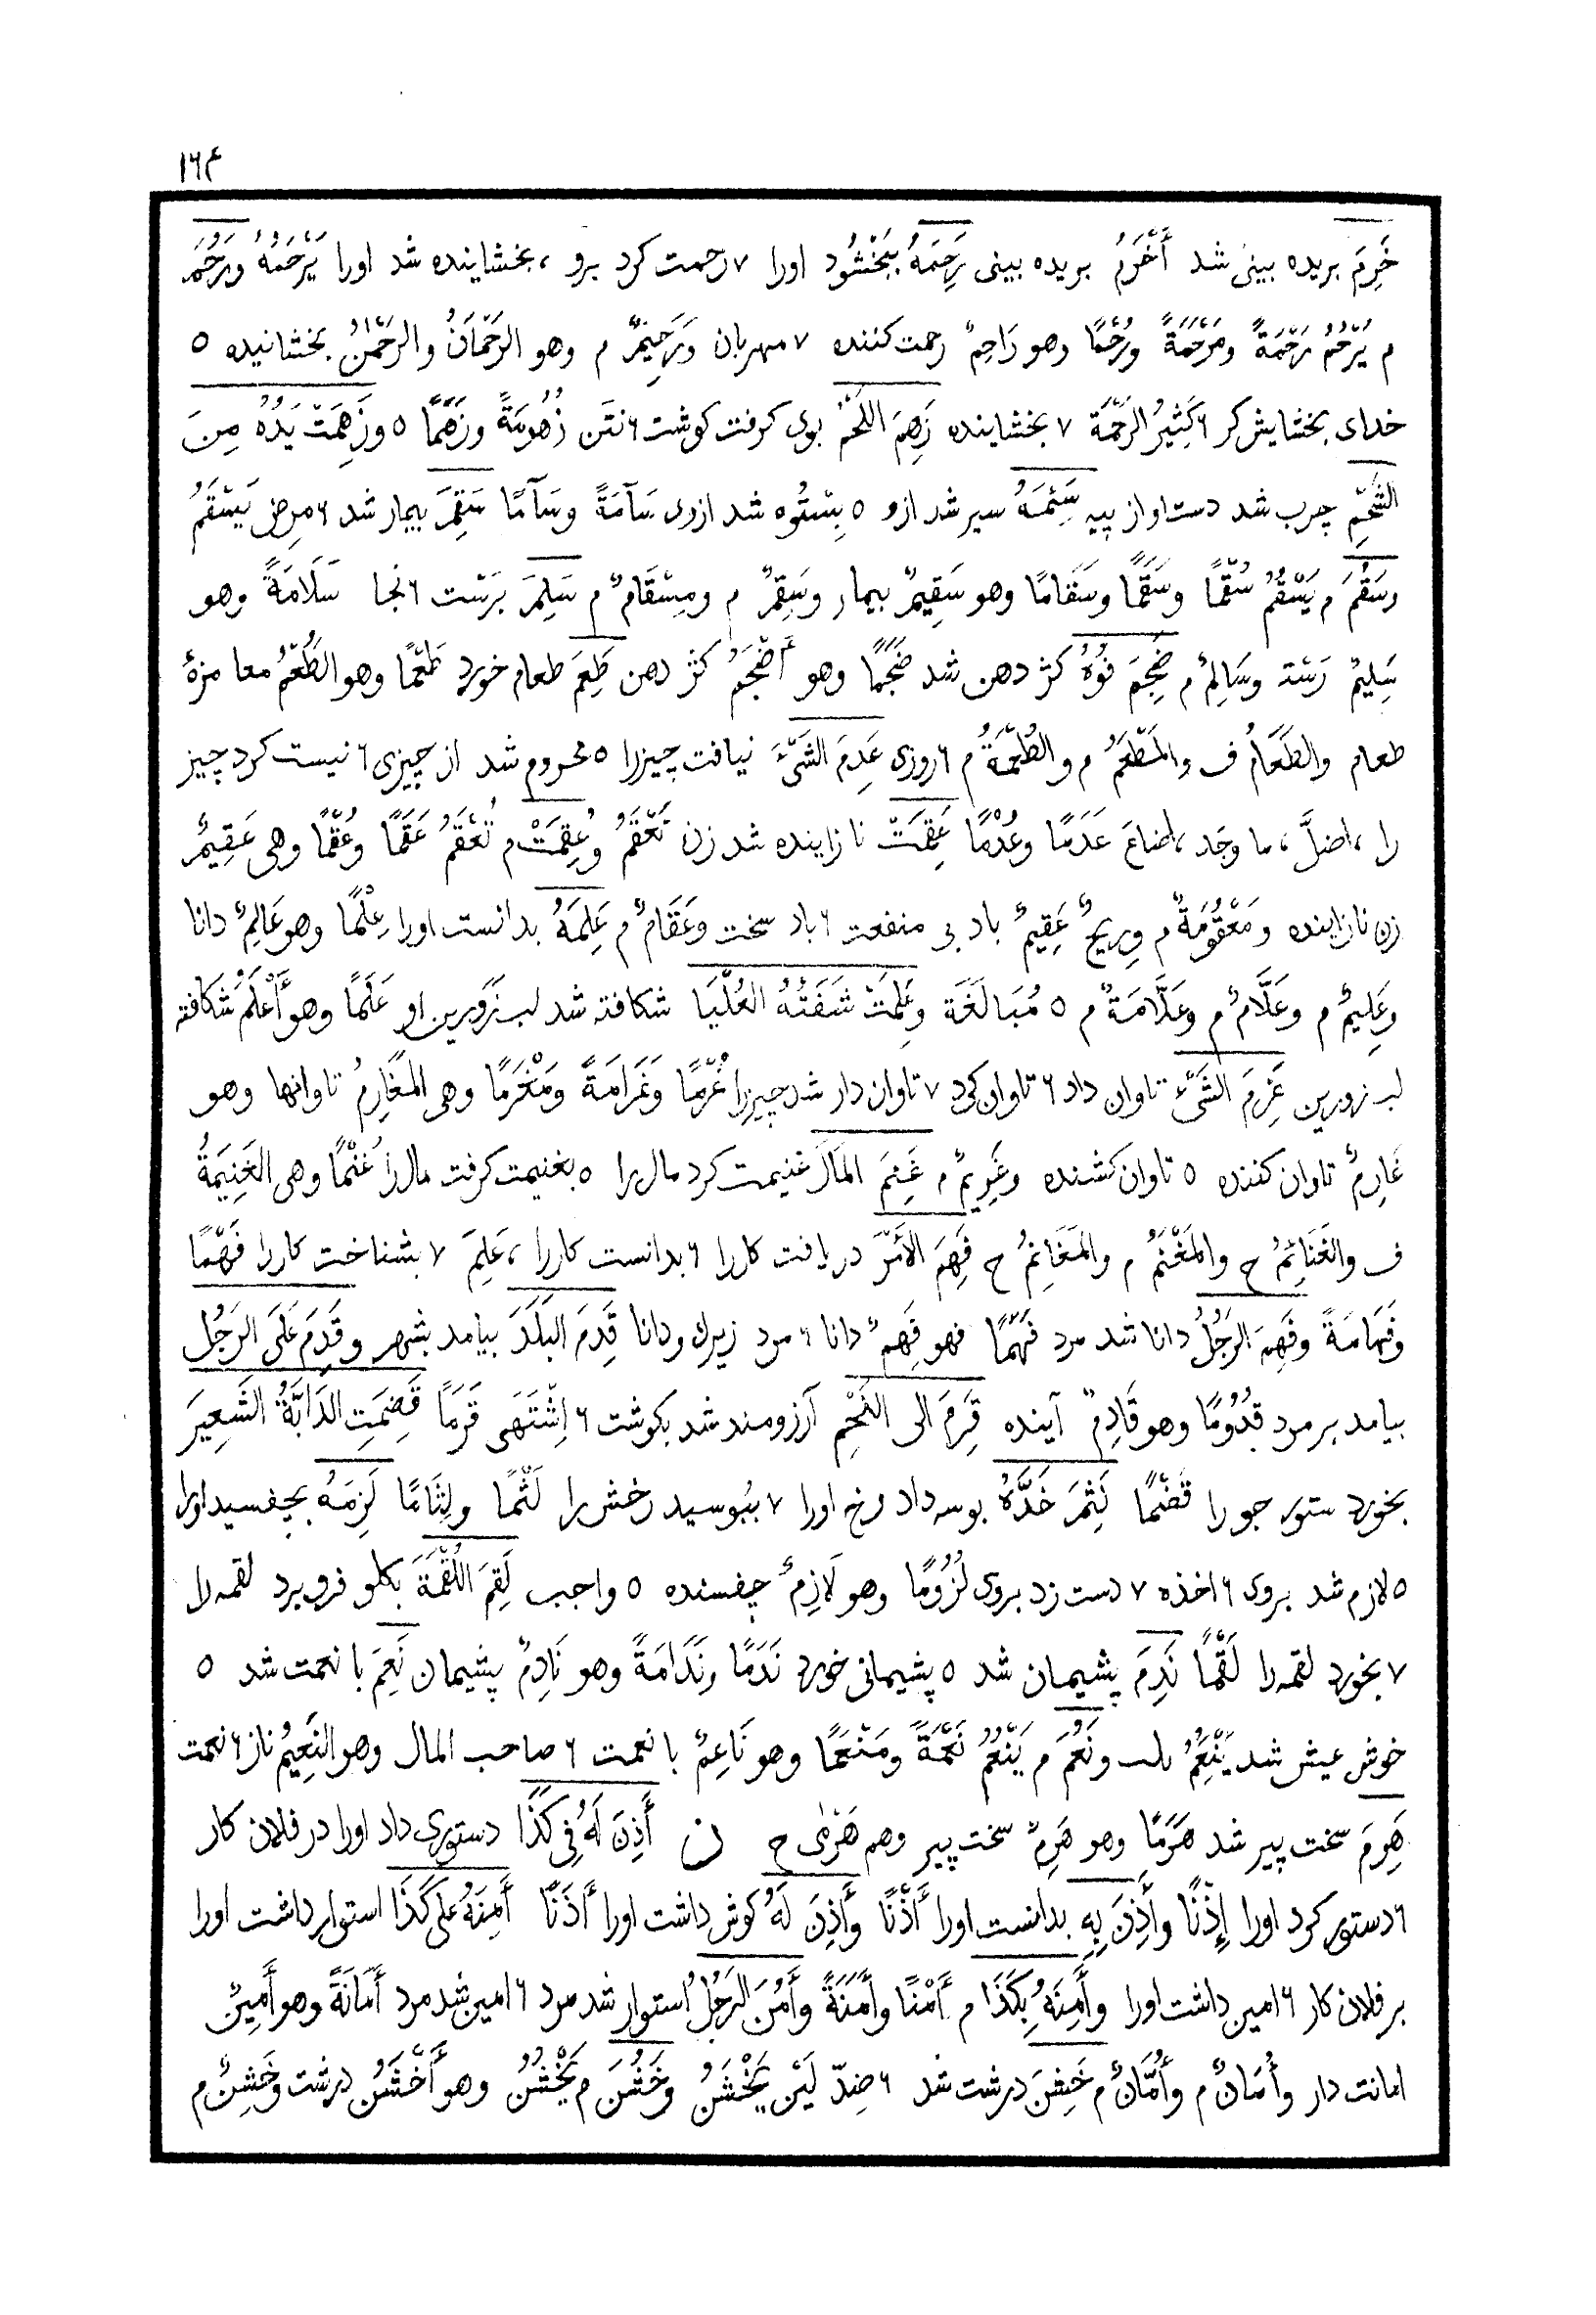 ١٦٤
خَرِمَ بریده بینی شد أَخْرَمُ بریده بینی رَحِمَهُ ببَخْشُود اورا ٧ رحمت کرد برو ، بخشاینده شد اورا يَرْحَمُهُ ورَحُمَ
م يَرْحُمُ رَحْمَةً ومَرْحَمَةً ورُحْمًا وهو رَاحِمٌ رحمت کننده ٧ مهربان ورَحِيمٌ م وهو الرَّحْمَانُ والرَّحْمٰنُ بخشانیده ٥
خدای بخشایش کر ٦ كَثِيرُ الرَّحْمَة ٧ بخشاینده زَهِمَ اللَّحْمُ بوی کرفت کوشت ٦ نتَن زُهُومَةً وزَهَمًا ٥ وزَهِمَتْ يَدُهُ مِنَ
الشَّحْمِ چرب شد دست او از پیه سَئِمَهُ سیر شد ازو ٥ بستُوه شد ازوی سَآمَةً وسَآمًا سَقِمَ بیمار شد ٦ مرض يَسْقَمُ
وسَقُمَ م يَسْقُمُ سُقْمًا وسَقَمًا وسَقَامًا وهو سَقِيمٌ بیمار وسَقِمٌ م ومِسْقَامٌ م سَلِمَ بَرَست ٦ نجا سَلَامَةً وهو
سَلِيمٌ رَسْته وسَالِمٌ م ضَجِمَ فُوهُ کژ دهن شد ضَجَمًا وهو أَضْجَمُ کژ دهن طَعِمَ طعام خورد طَعْمًا وهو الطُّعْمُ معا مزهٔ
طعام والطَّعَامُ ف والمَطْعَمُ م والطُّعْمَةُ م ٦ روزی عَدِمَ الشَّيْءَ نیافت چیزرا ٥ محروم شد از چیزی ٦ نیست کرد چیز
را ، اضلَّ ، ما وجَد ، اضاعَ عَدَمًا وعُدْمًا عَقِمَتْ نازاینده شد زن تَعْقَمُ وعُقِمَتْ م تُعْقَمُ عَقَمًا وعُقْمًا وهی عَقِيمٌ
زن نازاینده ومَعْقُومَةٌ م ورِيحٌ عَقِيمٌ باد بی منفعت ٦ باد سخت وعَقَامٌ م عَلِمَهُ بدانست اورا عِلْمًا وهو عَالِمٌ دانا
وعَلِيمٌ م وعَلَّامٌ م وعَلَّامَةٌ م ٥ مُبَالَغَة وعَلِمَتْ شَفَتُهُ العُلْيَا شکافته شد لب زَوَرین او عَلَمًا وهو أَعْلَمُ شکافته
لب زورین غَرِمَ الشَّيْءَ تاوان داد ٦ تاوان کرد ٧ تاوان دار شد چیزرا غُرْمًا وغَرَامَةً ومَغْرَمًا وهی المَغَارِمُ تاوانها وهو
غَارِمٌ تاوان کننده ٥ تاوان کشنده وغَرِيمٌ م غَنِمَ المَالَ غنیمت کرد مال را ٥ بغنیمت کرفت مال را غُنْمًا وهی الغَنِيمَةُ
ف والغَنَائِمُ ج والمَغْنَمُ م والمَغَانِمُ ج فَهِمَ الأَمْرَ دریافت کاررا ٦ بدانست کاررا ، عَلِمَ ٧ بشناخت کاررا فَهْمًا
وفَهَامَةً وفَهِمَ الرَّجُلُ دانا شد مرد فَهَمًا فهو فَهِمٌ دانا ٦ مرد زیرک ودانا قَدِمَ البَلَدَ بیامد بشهر وقَدِمَ عَلَى الرَّجُلِ
بیامد بر مرد قدُومًا وهو قَادِمٌ آینده قَرِمَ الى اللَّحْمِ آرزومند شد بکوشت ٦ اِشْتَهَى قَرَمًا قَضِمَتِ الدَّابَّةُ الشَّعِيرَ
بخورد ستور جو را قَضْمًا لَثِمَ خَدَّهُ بوسه داد رخ اورا ٧ ببُوسید رخش را لَثْمًا ولِثَامًا لَزِمَهُ بچفسید اورا
٥ لازم شد بروی ٦ اخذه ٧ دست زد بروی لُزُومًا وهو لَازِمٌ چفسنده ٥ واجب لَقِمَ اللُّقْمَةَ بکلو فرو برد لقمه را
٧ بخورد لقمه را لَقْمًا نَدِمَ پشیمان شد ٥ پشیمانی خورد نَدَمًا ونَدَامَةً وهو نَادِمٌ پشیمان نَعِمَ با نعمت شد ٥
خوش عیش شد يَنْعِمُ ونَعُمَ م يَنْعُمُ نَعْمَةً ومَنْعَمًا وهو نَاعِمٌ با نعمت ٦ صاحب المال وهو النَّعِيمُ ناز ٦ نعمت
هَرِمَ سخت پیر شد هَرَمًا وهو هَرِمٌ سخت پیر وهم هَرْمٰى ج ن أَذِنَ لَهُ فِي كَذَا دستوری داد اورا در فلان کار
٦ دستور کرد اورا إِذْنًا وأَذِنَ بِهِ بدانست اورا أَذْنًا وأَذِنَ لَهُ کوش داشت اورا أَذَنًا أَمِنَهُ عَلَى كَذَا استوار داشت اورا
بر فلان کار ٦ امین داشت اورا وأَمِنَهُ بِكَذَا م أَمْنًا وأَمَنَةً وأَمُنَ الرَّجُلُ استوار شد مرد ٦ امین شد مرد أَمَانَةً وهو أَمِينٌ
امانت دار وأُمَانٌ م وأُمَّانٌ م خَشِنَ درشت شد ٦ ضِدّ لَيِّن يَخْشَنُ وخَشُنَ م يَخْشُنُ وهو أَخْشَنُ درشت وخَشِنٌ م